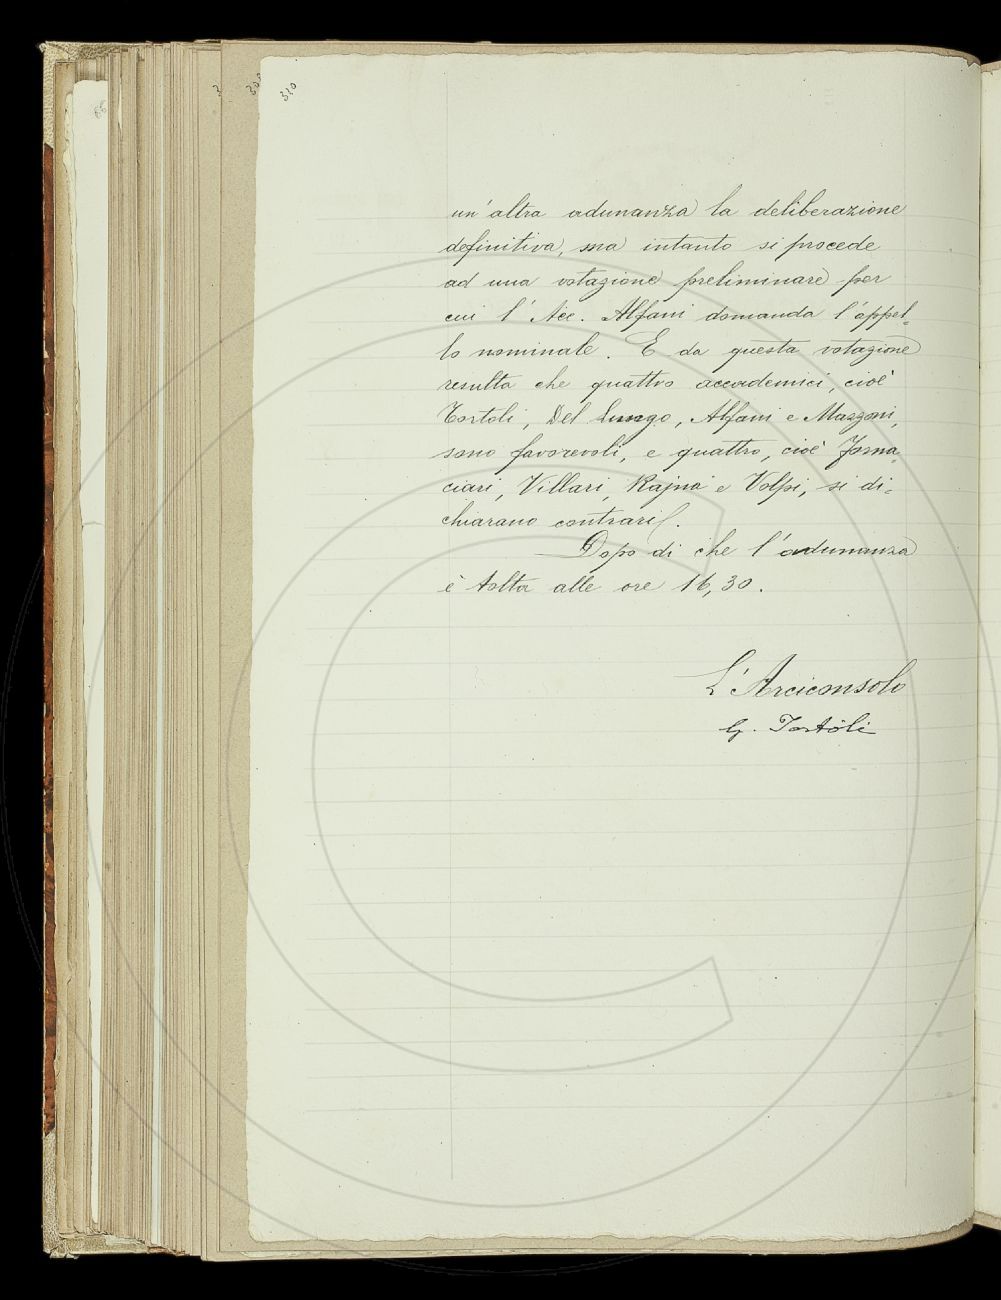 310
un'altra adunanza la deliberazione
definitiva, ma intanto si procede
ad una votazione preliminare per
cui l'Acc. Alfani domanda l'appel-
lo nominale. E da questa votazione
resulta che quattro accademici, cioè
Tortoli, Del Lungo, Alfani e Mazzoni,
sono favorevoli, e quattro, cioè Forna-
ciari, Villari, Rajna e Volpi, si di-
chiarano contrarii.
Dopo di che l'adunanza
è tolta alle ore 16,30.
L'Arciconsolo
G. Tortoli